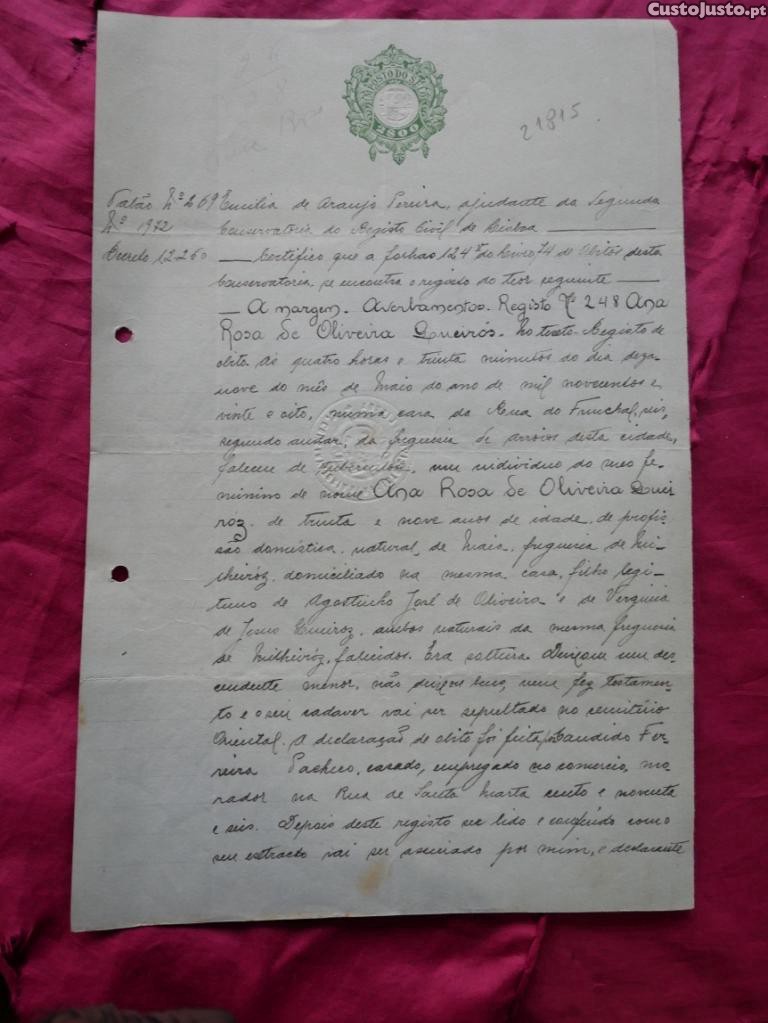 CustoJusto.pt
IMPOSTO DO SELO
2$00
21815
Talão Nº 269
Nº 1972
Decreto 12.260
Emilia de Araujo Pereira, ajudante da Segunda
Conservatoria do Registo Civil de Lisboa
Certifico que a folhas 124 do livro 74 de Obitos desta
Conservatoria se encontra o registo do teor seguinte
A margem. Averbamentos. Registo Nº 248 Ana
Rosa de Oliveira Queirós. No texto. Registo de
obito. Ás quatro horas e trinta minutos do dia deza-
nove do mês de Maio do ano de mil novecentos e
vinte e oito, numa casa da Rua do Funchal, seis,
segundo andar, da freguesia de Arroios desta cidade,
faleceu de tuberculose, um individuo do sexo fe-
minino de nome Ana Rosa de Oliveira Quei
roz, de trinta e nove anos de idade, de profis-
são doméstica, natural de Maia, freguesia de Mi-
lheiróz, domiciliado na mesma casa, filho legi-
timo de Agostinho José de Oliveira e de
de Jesus Queiroz, ambos naturais da mesma freguesia
de Milheiróz, falecidos. Era solteira. Deixou um des-
cendente menor, não deixou bens, nem fez testamen-
to e o seu cadaver vai ser sepultado no cemitério
Oriental. A declaração de obito foi feita por Candido Fer-
reira Pacheco, casado, empregado no comercio, mo-
rador na Rua de Santa Marta cento e noventa
e seis. Depois deste registo ser lido e conferido como
seu extracto vai ser assinado por mim, e declarante